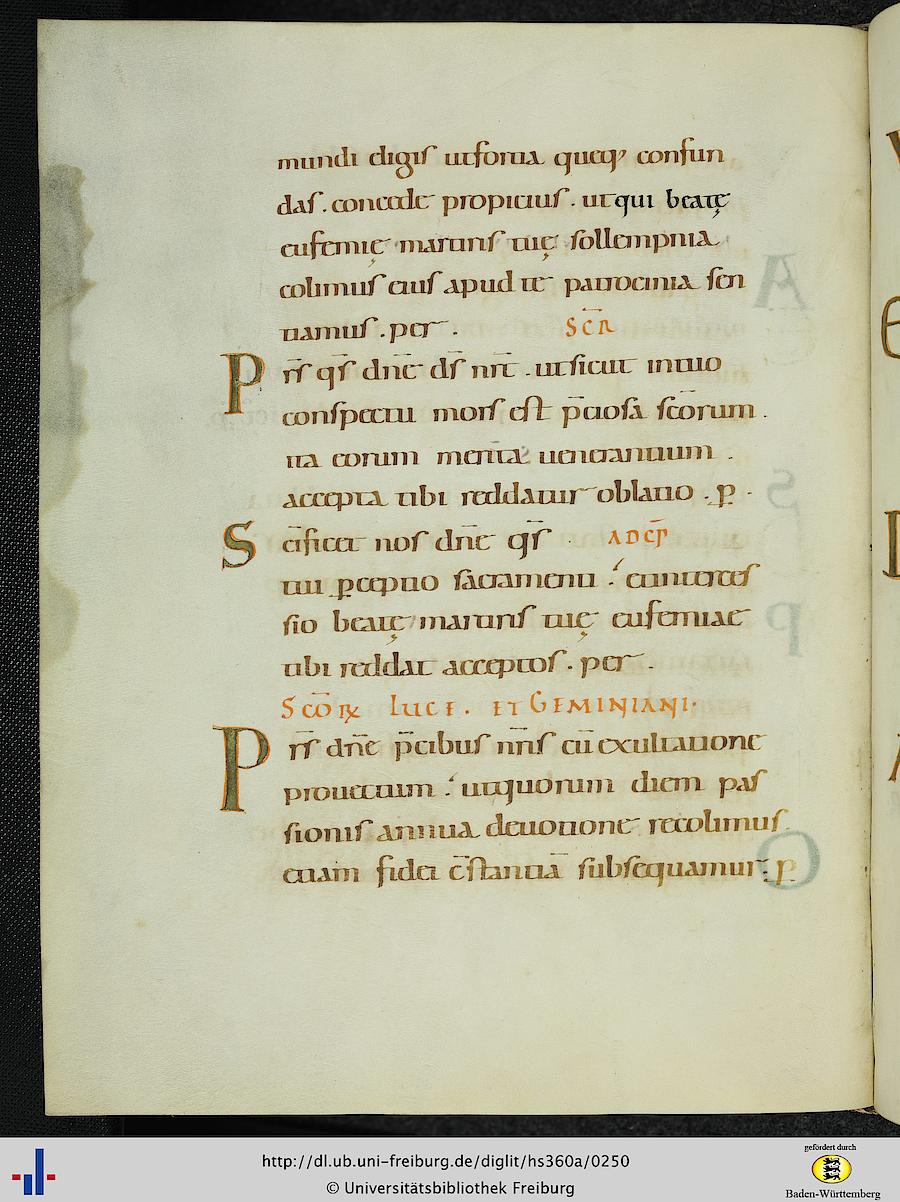 mundi eligis ut fortia queq; confun
das. concede propicius. ut qui beatę
eufemię martiris tuę sollempnia
colimus eius apud te patrocinia sen
tiamus. per. SCR̄
Prs̄ qs̄ dn̄e ds̄ nr̄t. ut sicut in tuo
conspectu mors est p̄ciosa sc̄orum.
ita eorum merita uenerantium.
accepta tibi reddatur oblatio. ꝑ.
Sc̄ificet nos dn̄e qs̄. AD CP̄
tui ꝑceptio sacramenti. et interces
sio beatę martiris tuę eufemiae
tibi reddat acceptos. per.
SCŌꝜ LUCE. ET GEMINIANI.
Prs̄ dn̄e p̄cibus nr̄is cū exultatione
prouectum. ut quorum diem pas
sionis annua deuotione recolimus.
etiam fidei c̄stantiā subsequamur. ꝑ
http://dl.ub.uni-freiburg.de/diglit/hs360a/0250
© Universitätsbibliothek Freiburg
gefördert durch
Baden-Württemberg